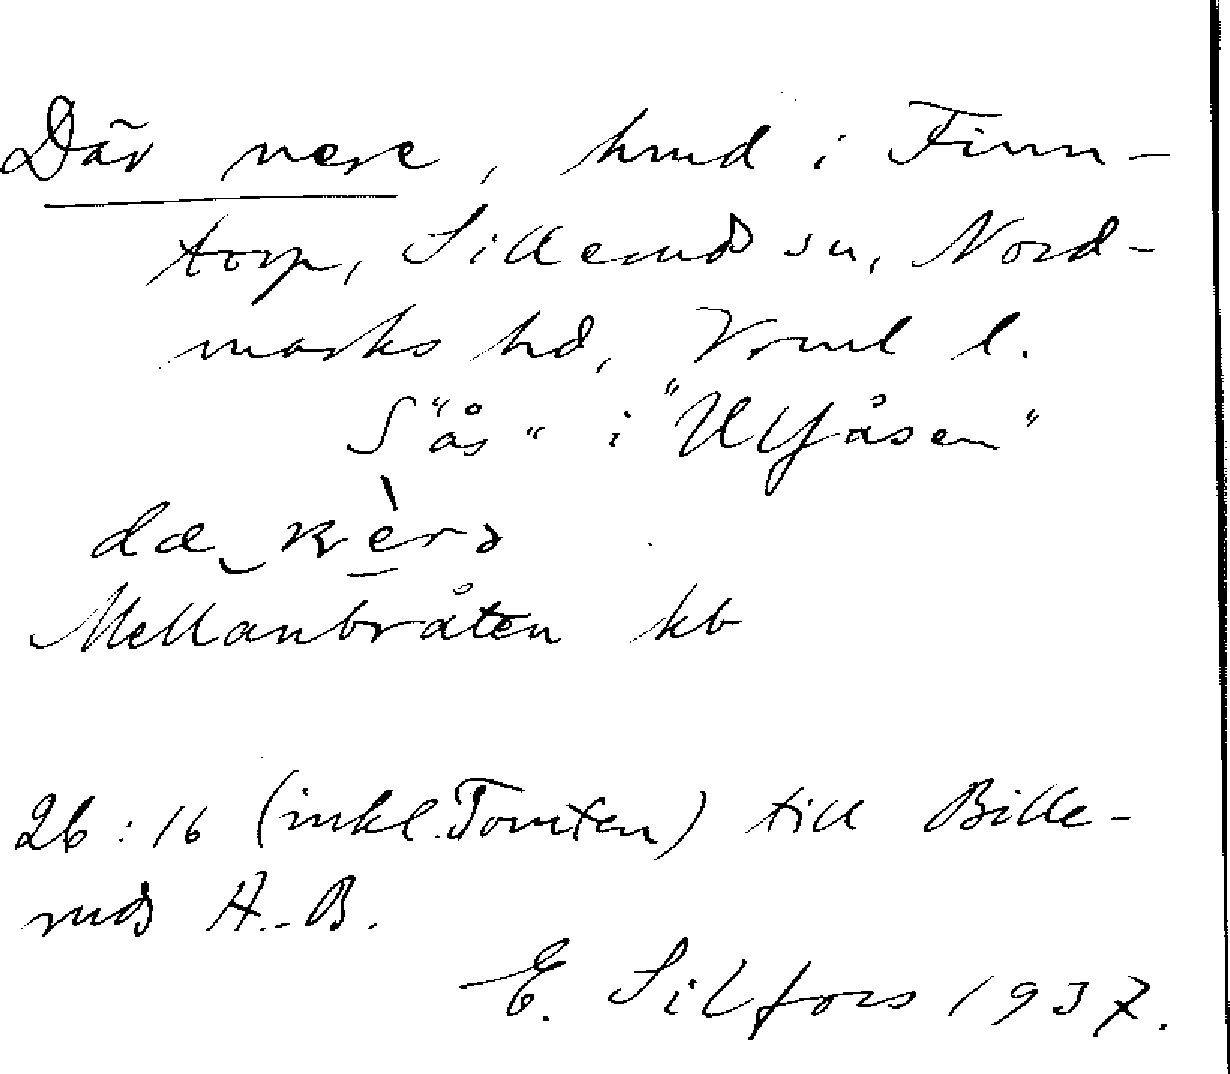 Där nere, hmd i Finn-
torp, Silleruds sn, Nord-
marks hd, Vrml l.
S "ås" i "Ulfåsen"
Mellanbråten kb
26:16 (inkl. Tomten) till Bille-
ruds A.-B.
E. Silfors 1937.